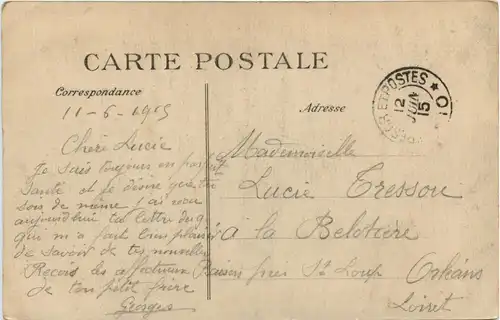 CARTE POSTALE
Correspondance
Adresse
11-6-1915
TRESOR ET POSTES ★
12
JUIN
15
Cheré Lucie
Je suis toujours en parfaite
santé et je désire que toi
sois de même j'ai reçu
aujourd'hui ta lettre du 9
qui m'a fait bien plaisir
de savoir de tes nouvelles
Recois les affectueux Baisers
de ton petit frère
Georges
Mademoiselle
Lucie Tressou
à la Belotière
près St Loup Orléans
Loiret